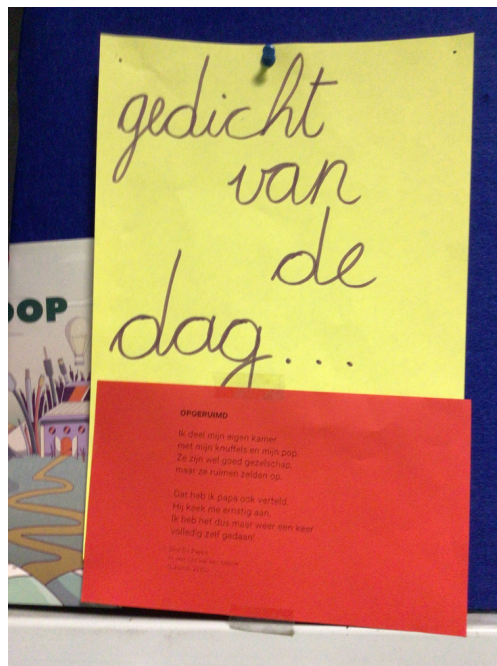 gedicht
van
de
dag...
OOP
OPGERUIMD
Ik deel mijn eigen kamer
met mijn knuffels en mijn pop.
Ze zijn wel goed gezelschap,
maar ze ruimen zelden op.
Dat heb ik papa ook verteld.
Hij keek me ernstig aan.
Ik heb het dus maar weer een keer
volledig zelf gedaan!